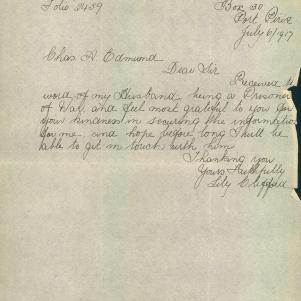 Folio 2459
Box 130
Port Pirie
July 6/1917
Chas A. Edmund
Dear Sir
Received
word of my Husband being a Prisoner
of War, and feel most grateful to you for
your kindness in securing the information
for me, and hope before long I will be
able to get in touch with him
Thanking you
Yours Faithfully
Lily Clifford